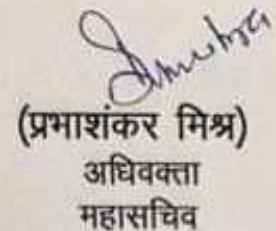 (प्रभाशंकर मिश्र)
अधिवक्ता
महासचिव